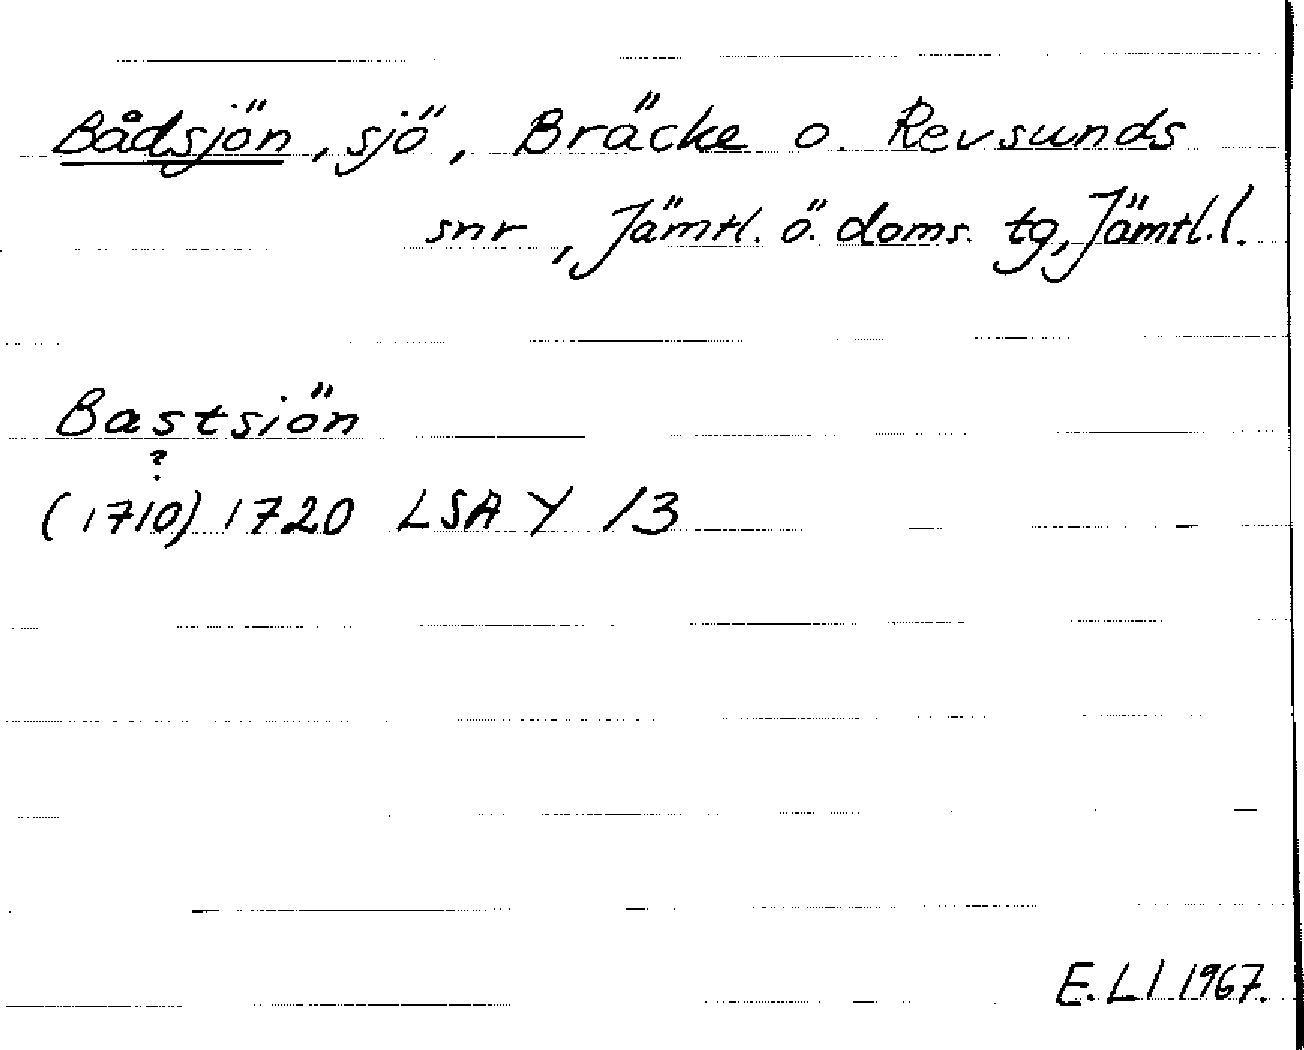 Bådsjön, sjö, Bräcke o. Revsunds
snr, Jämtl. ö. doms. tg, Jämtl. l.
Bastsiön
?
(1710) 1720 LSA Y 13
E. Ll 1967.